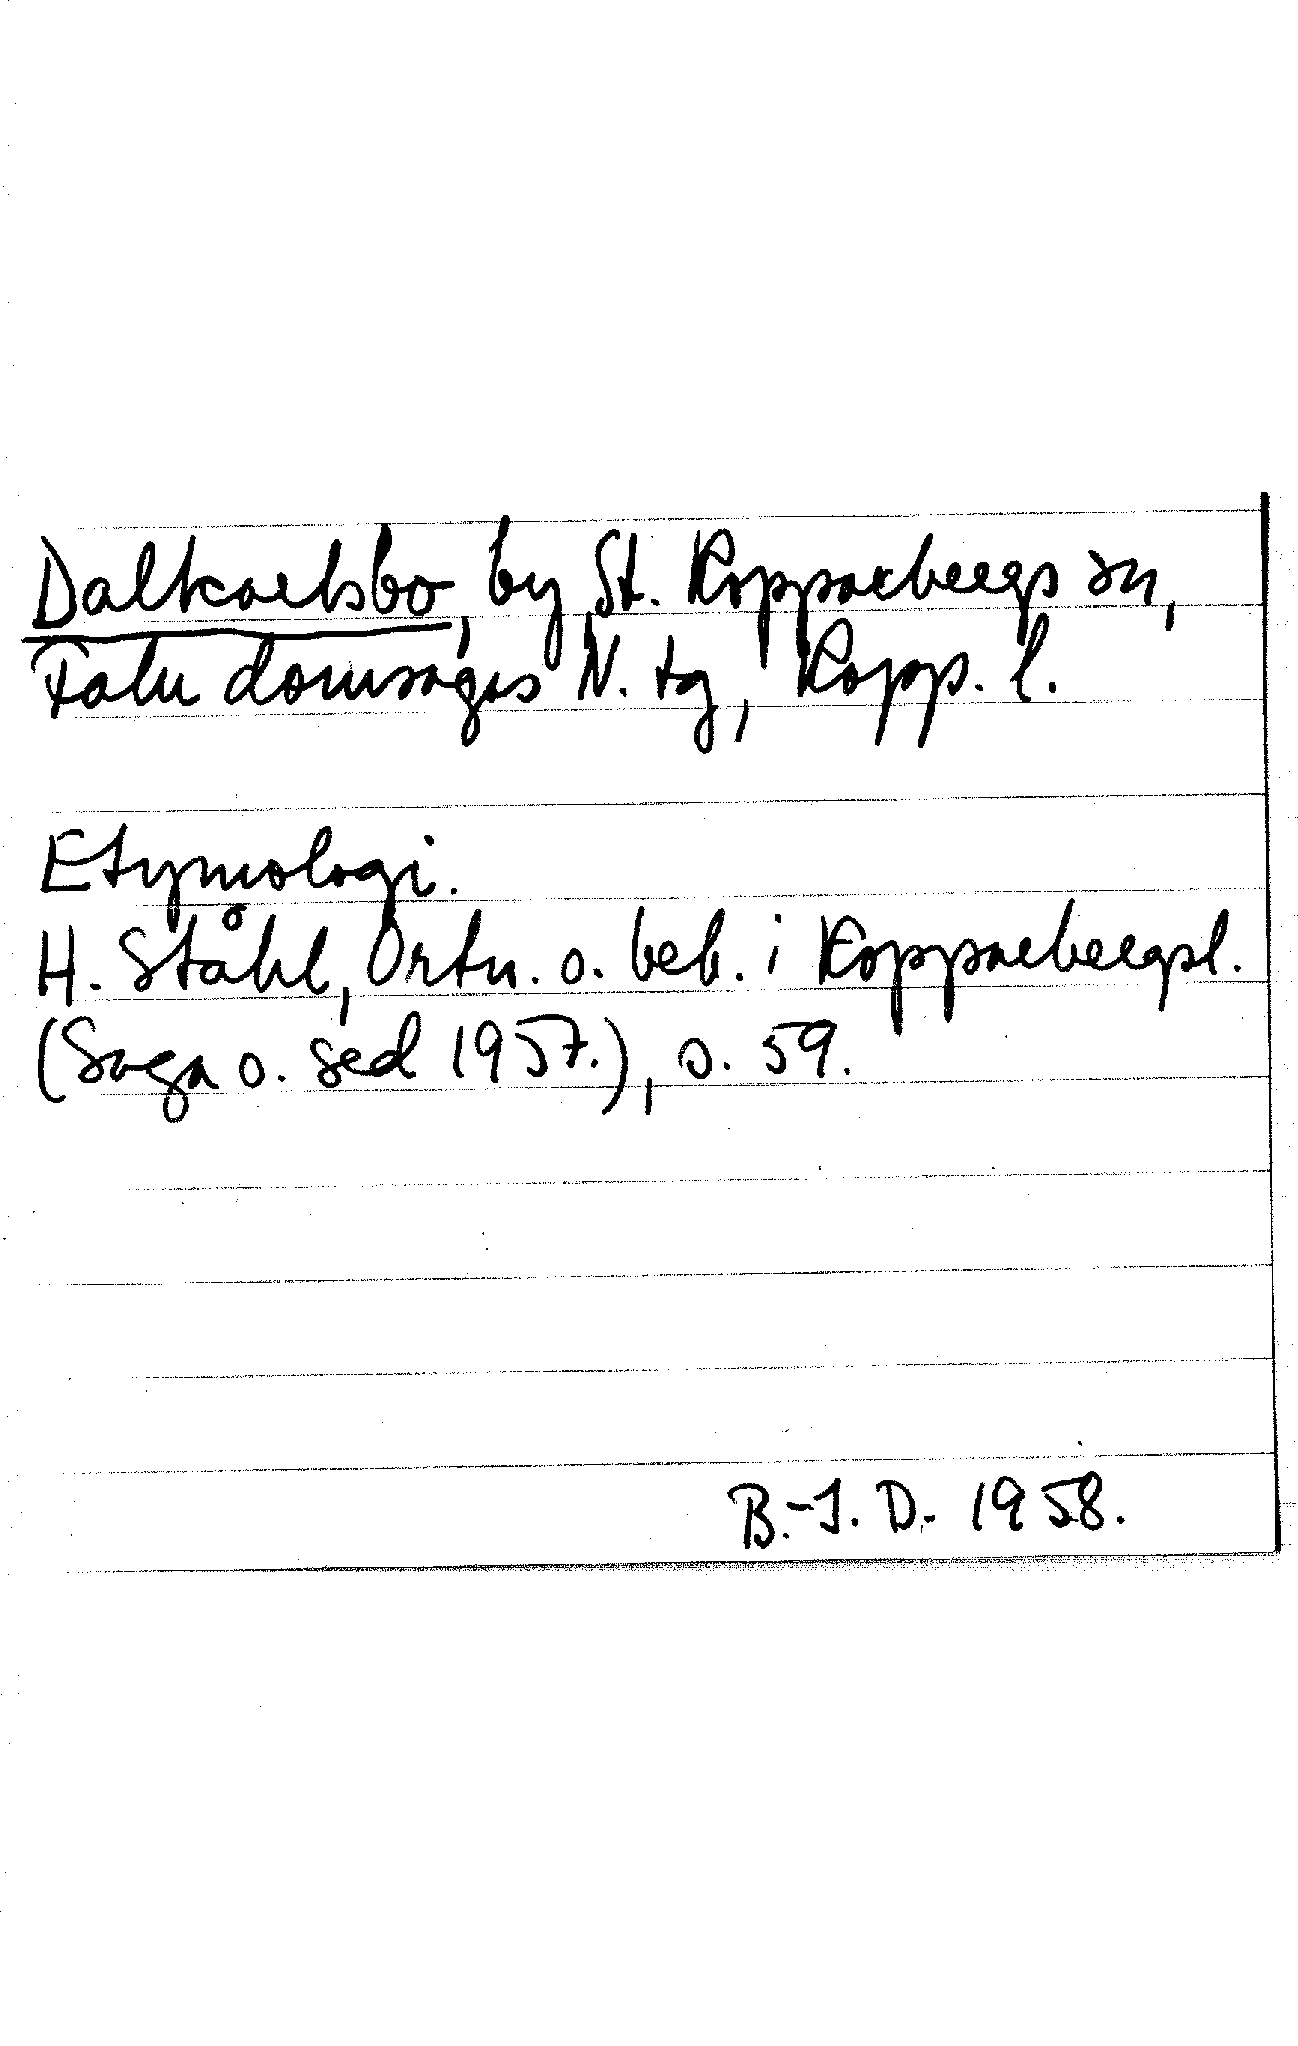 Dalkarlsbo, by St. Kopparbergs sn,
Falu domsagas N. tg, Kopp. l.
Etymologi.
H. Ståhl, Ortn. o. beb. i Kopparbergsl.
(Saga o. sed 1957.), s. 59.
B.-I. D. 1958.